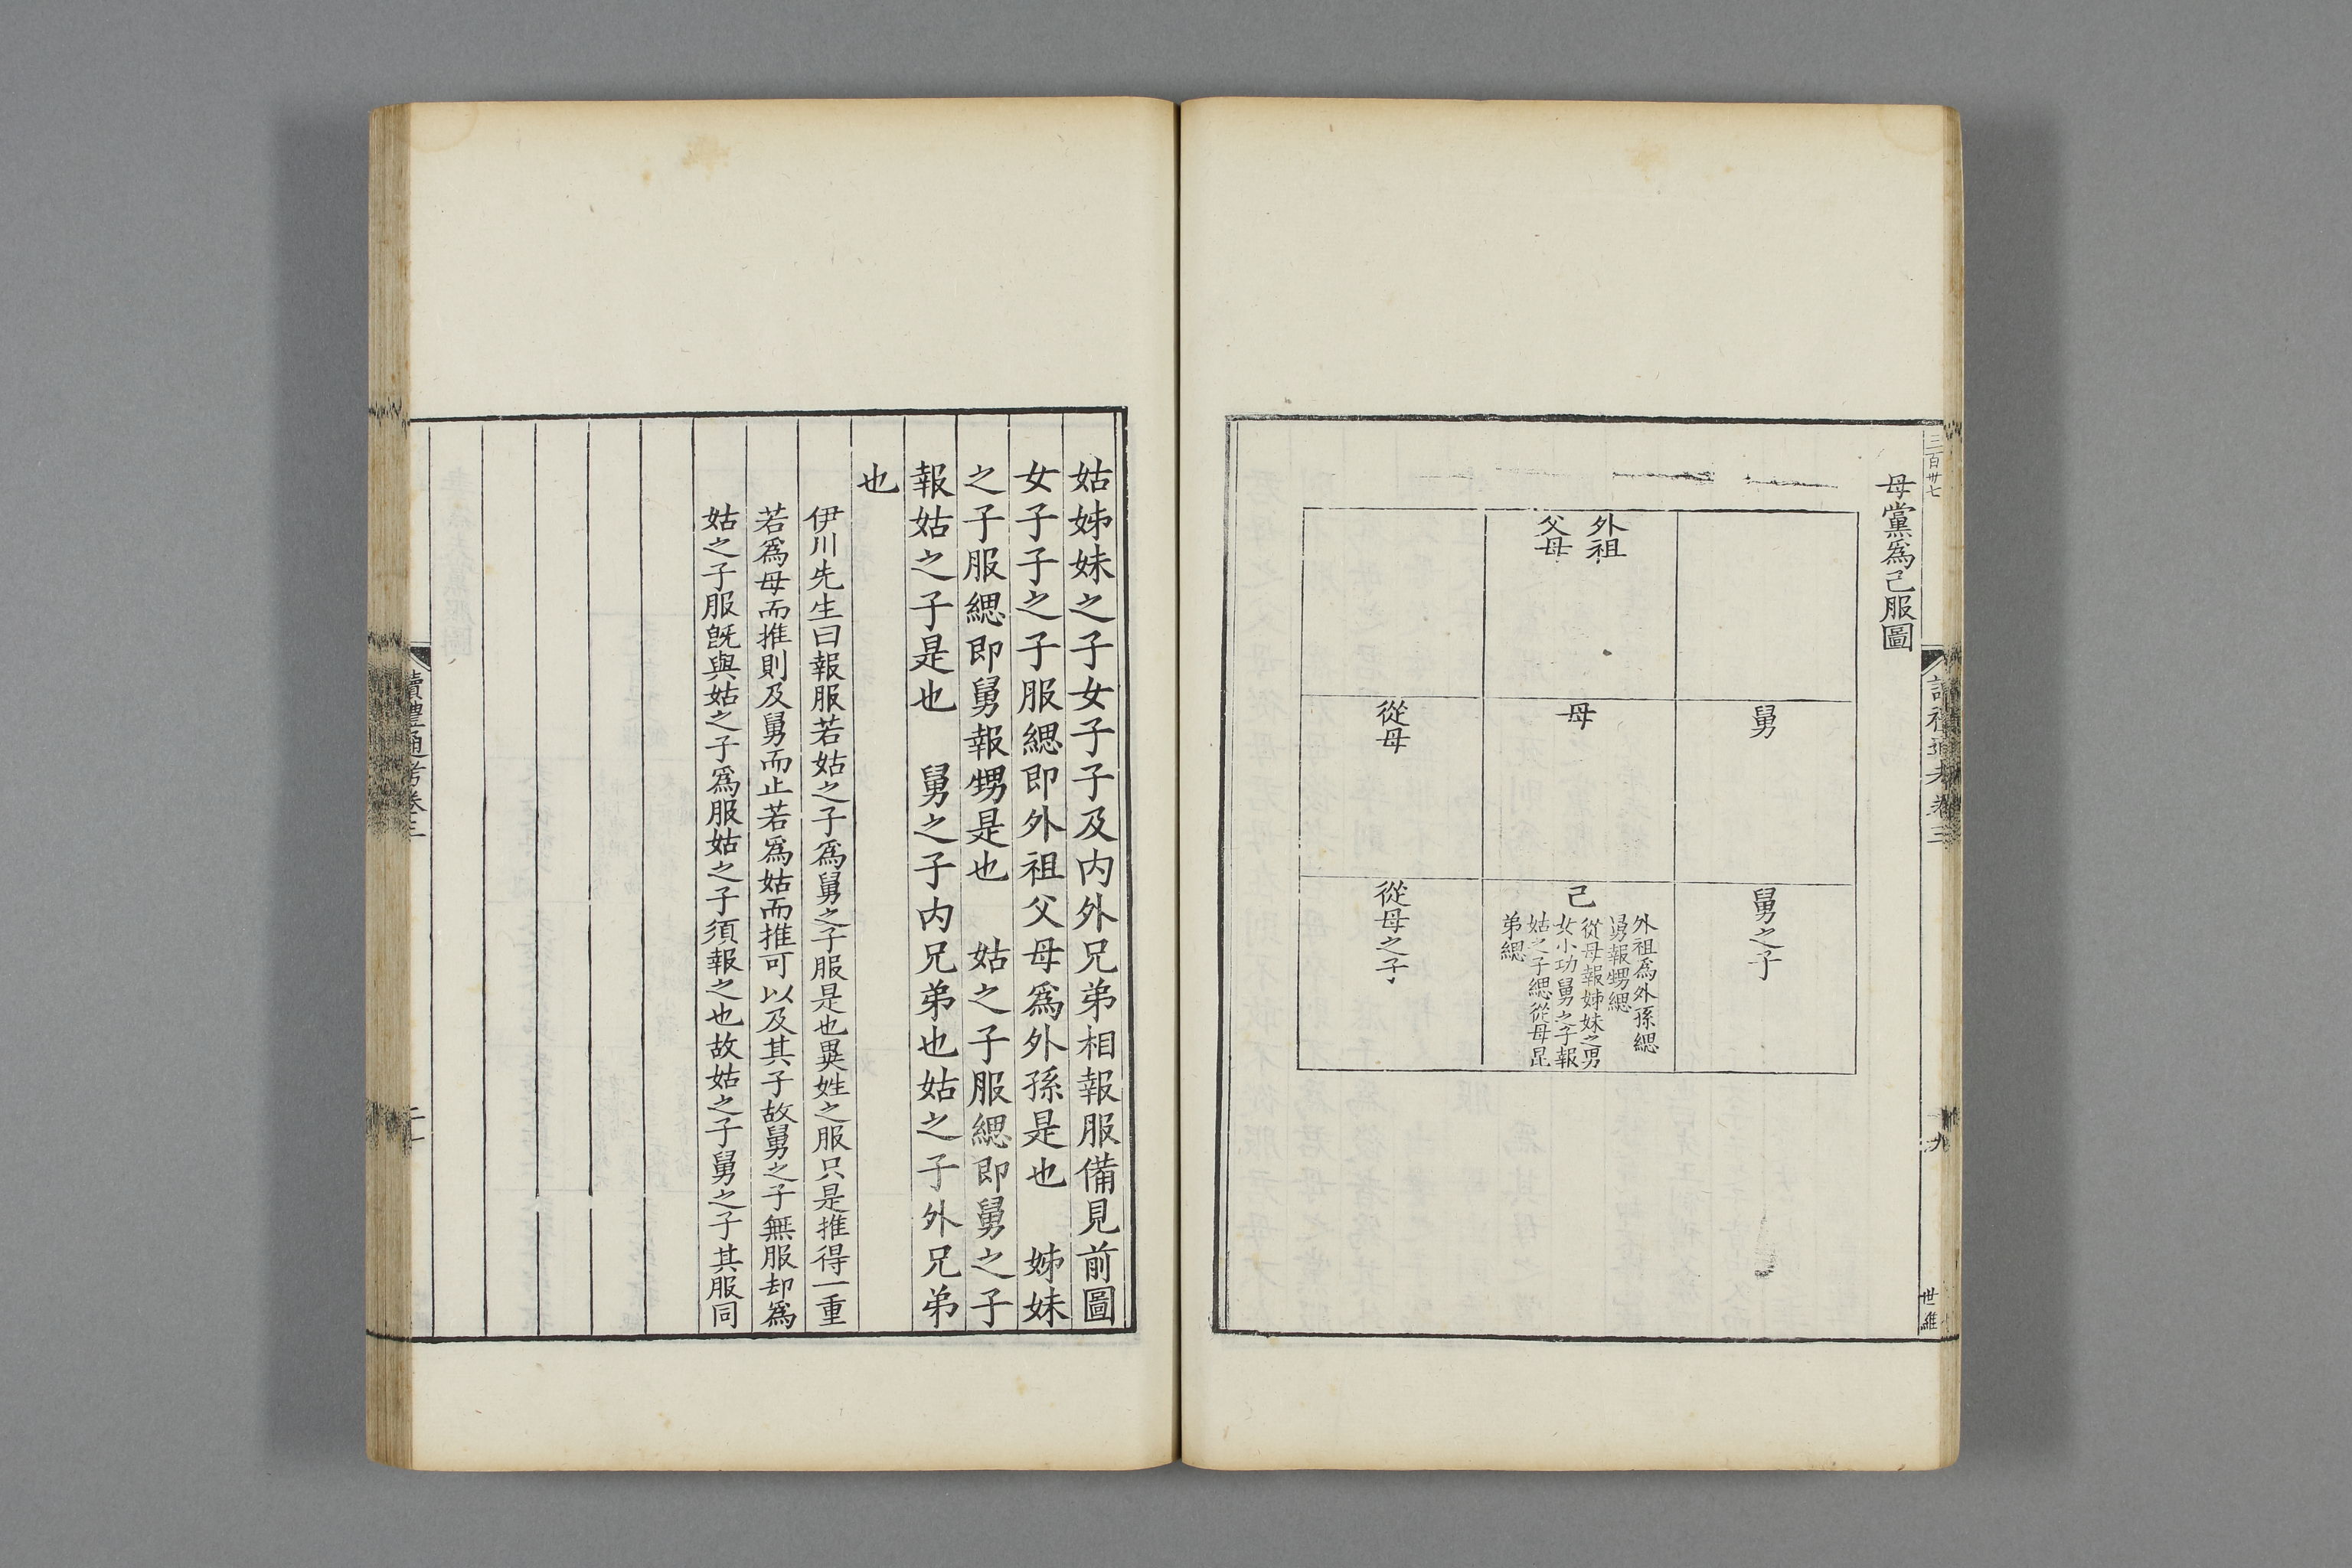 三百卅七
讀禮通考卷三
九
世維
母黨爲己服圖
外祖
父母
舅
母
從母
舅之子
己
外祖爲外孫緦
舅報甥緦
從母報姊妹之男
女小功舅之子報
姑之子緦從母昆
弟緦
從母之子
姑姊妹之子女子子及内外兄弟相報服備見前圖
女子子之子服緦即外祖父母爲外孫是也　姊妹
之子服緦即舅報甥是也　姑之子服緦即舅之子
報姑之子是也　舅之子内兄弟也姑之子外兄弟
也
伊川先生曰報服若姑之子爲舅之子服是也異姓之服只是推得一重
若爲母而推則及舅而止若爲姑而推可以及其子故舅之子無服却爲
姑之子服旣與姑之子爲服姑之子須報之也故姑之子舅之子其服同
讀禮通考卷三